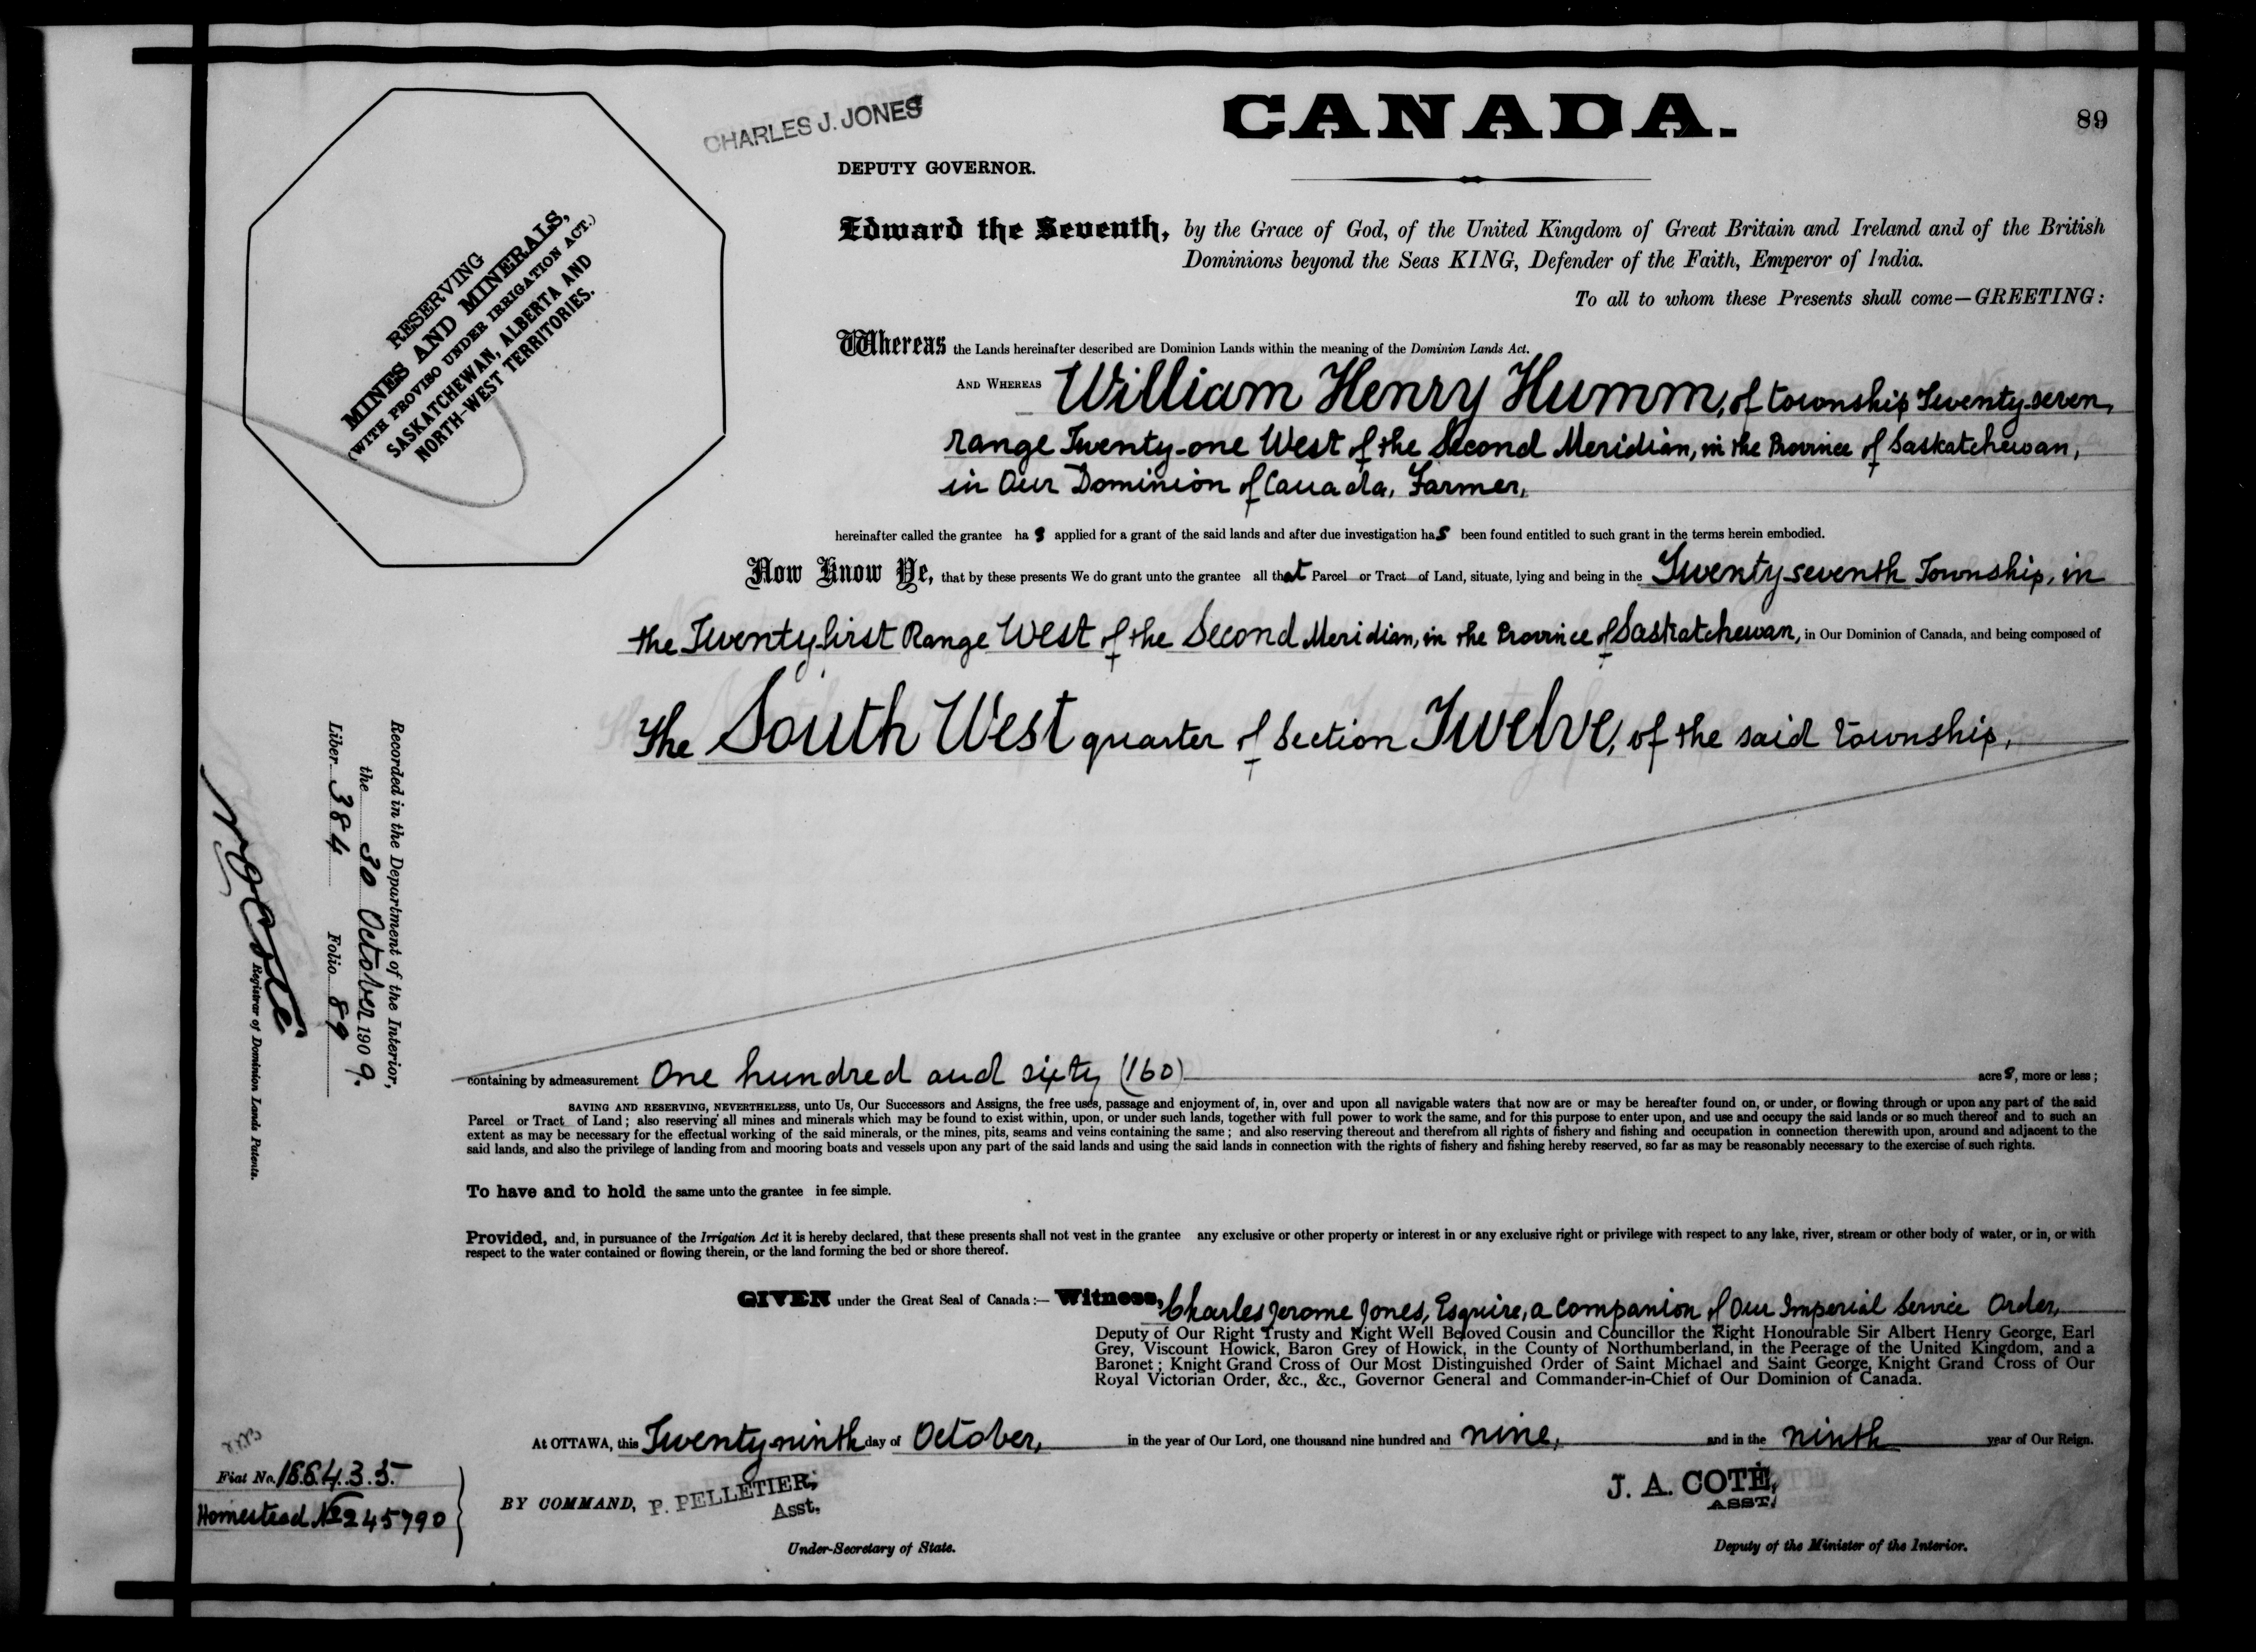 CANADA.
89
CHARLES J. JONES
DEPUTY GOVERNOR.
RESERVING
MINES AND MINERALS,
(WITH PROVISO UNDER IRRIGATION ACT.)
SASKATCHEWAN, ALBERTA AND
NORTH-WEST TERRITORIES.
Edward the Seventh, by the Grace of God, of the United Kingdom of Great Britain and Ireland and of the British
Dominions beyond the Seas KING, Defender of the Faith, Emperor of India.
To all to whom these Presents shall come—GREETING:
Whereas the Lands hereinafter described are Dominion Lands within the meaning of the Dominion Lands Act.
AND WHEREAS William Henry Humm, of township Twenty-seven,
range Twenty-one West of the Second Meridian, in the Province of Saskatchewan,
in Our Dominion of Canada, Farmer,
hereinafter called the grantee has applied for a grant of the said lands and after due investigation has been found entitled to such grant in the terms herein embodied.
Now Know Ye, that by these presents We do grant unto the grantee all that Parcel or Tract of Land, situate, lying and being in the Twenty seventh Township, in
the Twenty first Range West of the Second Meridian, in the Province of Saskatchewan, in Our Dominion of Canada, and being composed of
The South West quarter of Section Twelve, of the said township,
containing by admeasurement One hundred and sixty (160) acres, more or less;
SAVING AND RESERVING, NEVERTHELESS, unto Us, Our Successors and Assigns, the free uses, passage and enjoyment of, in, over and upon all navigable waters that now are or may be hereafter found on, or under, or flowing through or upon any part of the said
Parcel or Tract of Land; also reserving all mines and minerals which may be found to exist within, upon, or under such lands, together with full power to work the same, and for this purpose to enter upon, and use and occupy the said lands or so much thereof and to such an
extent as may be necessary for the effectual working of the said minerals, or the mines, pits, seams and veins containing the same; and also reserving thereout and therefrom all rights of fishery and fishing and occupation in connection therewith upon, around and adjacent to the
said lands, and also the privilege of landing from and mooring boats and vessels upon any part of the said lands and using the said lands in connection with the rights of fishery and fishing hereby reserved, so far as may be reasonably necessary to the exercise of such rights.
To have and to hold the same unto the grantee in fee simple.
Provided, and, in pursuance of the Irrigation Act it is hereby declared, that these presents shall not vest in the grantee any exclusive or other property or interest in or any exclusive right or privilege with respect to any lake, river, stream or other body of water, or in, or with
respect to the water contained or flowing therein, or the land forming the bed or shore thereof.
GIVEN under the Great Seal of Canada:— Witness, Charles Jerome Jones, Esquire, a companion of Our Imperial Service Order,
Deputy of Our Right Trusty and Right Well Beloved Cousin and Councillor the Right Honourable Sir Albert Henry George, Earl
Grey, Viscount Howick, Baron Grey of Howick, in the County of Northumberland, in the Peerage of the United Kingdom, and a
Baronet; Knight Grand Cross of Our Most Distinguished Order of Saint Michael and Saint George, Knight Grand Cross of Our
Royal Victorian Order, &c., &c., Governor General and Commander-in-Chief of Our Dominion of Canada.
At OTTAWA, this Twenty ninth day of October, in the year of Our Lord, one thousand nine hundred and nine, and in the ninth year of Our Reign.
BY COMMAND, P. PELLETIER,
Asst.
Under-Secretary of State.
J. A. COTÉ,
ASST.
Deputy of the Minister of the Interior.
Fiat No. 186435
Homestead No 245790
Recorded in the Department of the Interior,
the 30 October 1909.
Liber 384 Folio 89
N O Coté
Registrar of Dominion Lands Patents.